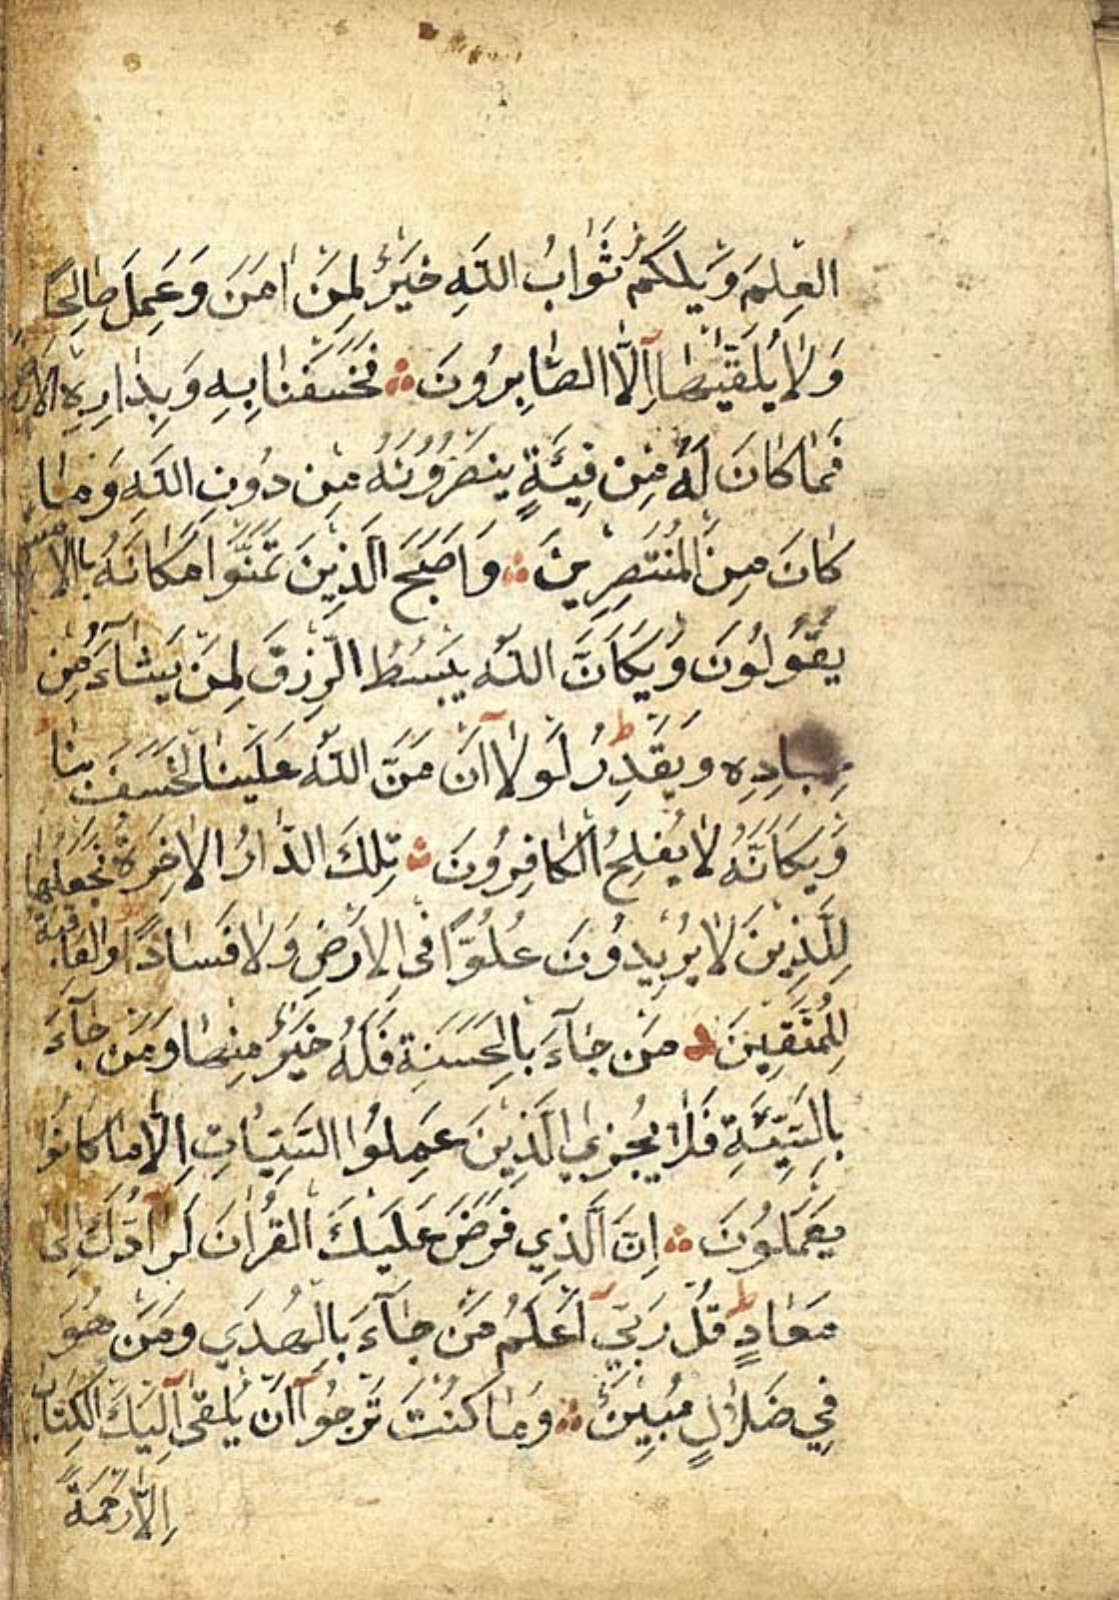 العِلمَ وَيلَكُم ثَوَابُ اللّهِ خَيرٌ لِمَن اٰمَنَ وَعَمِلَ صَالِحًا
وَلَا يُلَقّٰيهَا اِلَّا الصَّابِرُونَ ۞ فَخَسَفنَا بِهِ وَبِدَارِهِ الاَرضَ
فَمَا كَانَ لَهُ مِن فِئَةٍ يَنصُرُونَهُ مِن دُونِ اللّهِ وَمَا
كَانَ مِنَ المُنتَصِرِينَ ۞ وَاَصبَحَ الَّذِينَ تَمَنَّوا مَكَانَهُ بِالاَمسِ
يَقُولُونَ وَيكَاَنَّ اللّهَ يَبسُطُ الرِّزقَ لِمَن يَشَآءُ مِن
عِبادِهِ وَيَقدِرُ لَولَا اَن مَنَّ اللّهُ عَلَينَا لَخَسَفَ بِنَا
وَيكَاَنَّهُ لَا يُفلِحُ الكَافِرُونَ ۞ تِلكَ الدَّارُ الاٰخِرَةُ نَجعَلُهَا
لِلَّذِينَ لَا يُرِيدُونَ عُلُوًّا فِي الاَرضِ وَلَا فَسَادًا وَالعَاقِبَةُ
لِلمُتَّقِينَ ۞ مَن جَآءَ بِالحَسَنَةِ فَلَهُ خَيرٌ مِنهَا وَمَن جَآءَ
بِالسَّيِّئَةِ فَلَا يُجزَي الَّذِينَ عَمِلُوا السَّيِّئَاتِ اِلَّا مَا كَانُوا
يَعمَلُونَ ۞ اِنَّ الَّذِي فَرَضَ عَلَيكَ القُراٰنَ لَرَآدُّكَ اِلٰى
مَعَادٍ ط قُل رَبِّي اَعلَمُ مَن جَآءَ بِالهُدَي وَمَن هُوَ
فِي ضَلَالٍ مُبِينٍ ۞ وَمَا كُنتَ تَرجُوا اَن يُلقٰى اِلَيكَ الكِتَابُ
اِلَّا رَحمَةً